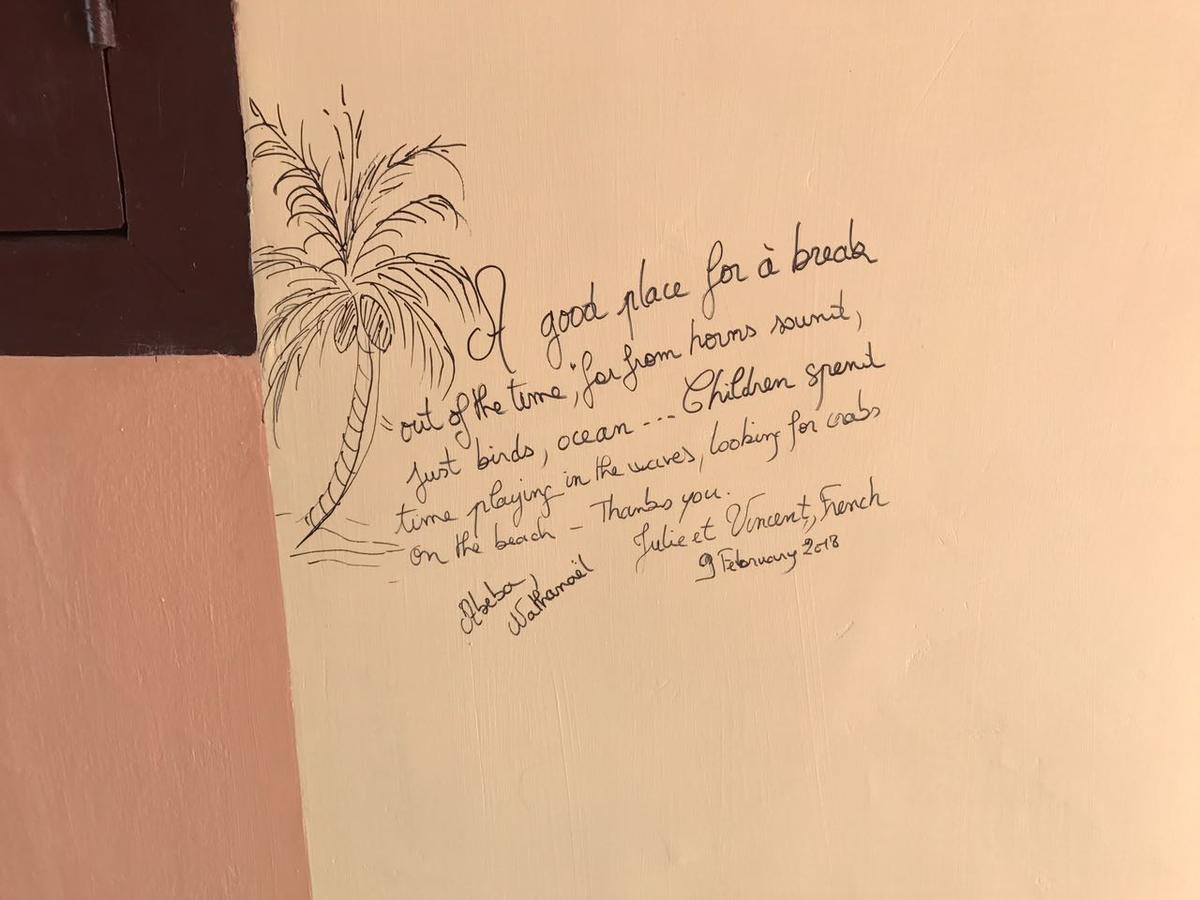 A good place for à break
"out of the time", far from horns sound,
Just birds, ocean --- Children spend
time playing in the waves, looking for crabs
on the beach - Thanks you.
Julie et Vincent, French
9 February 2018
Abeba,
Nathanaël